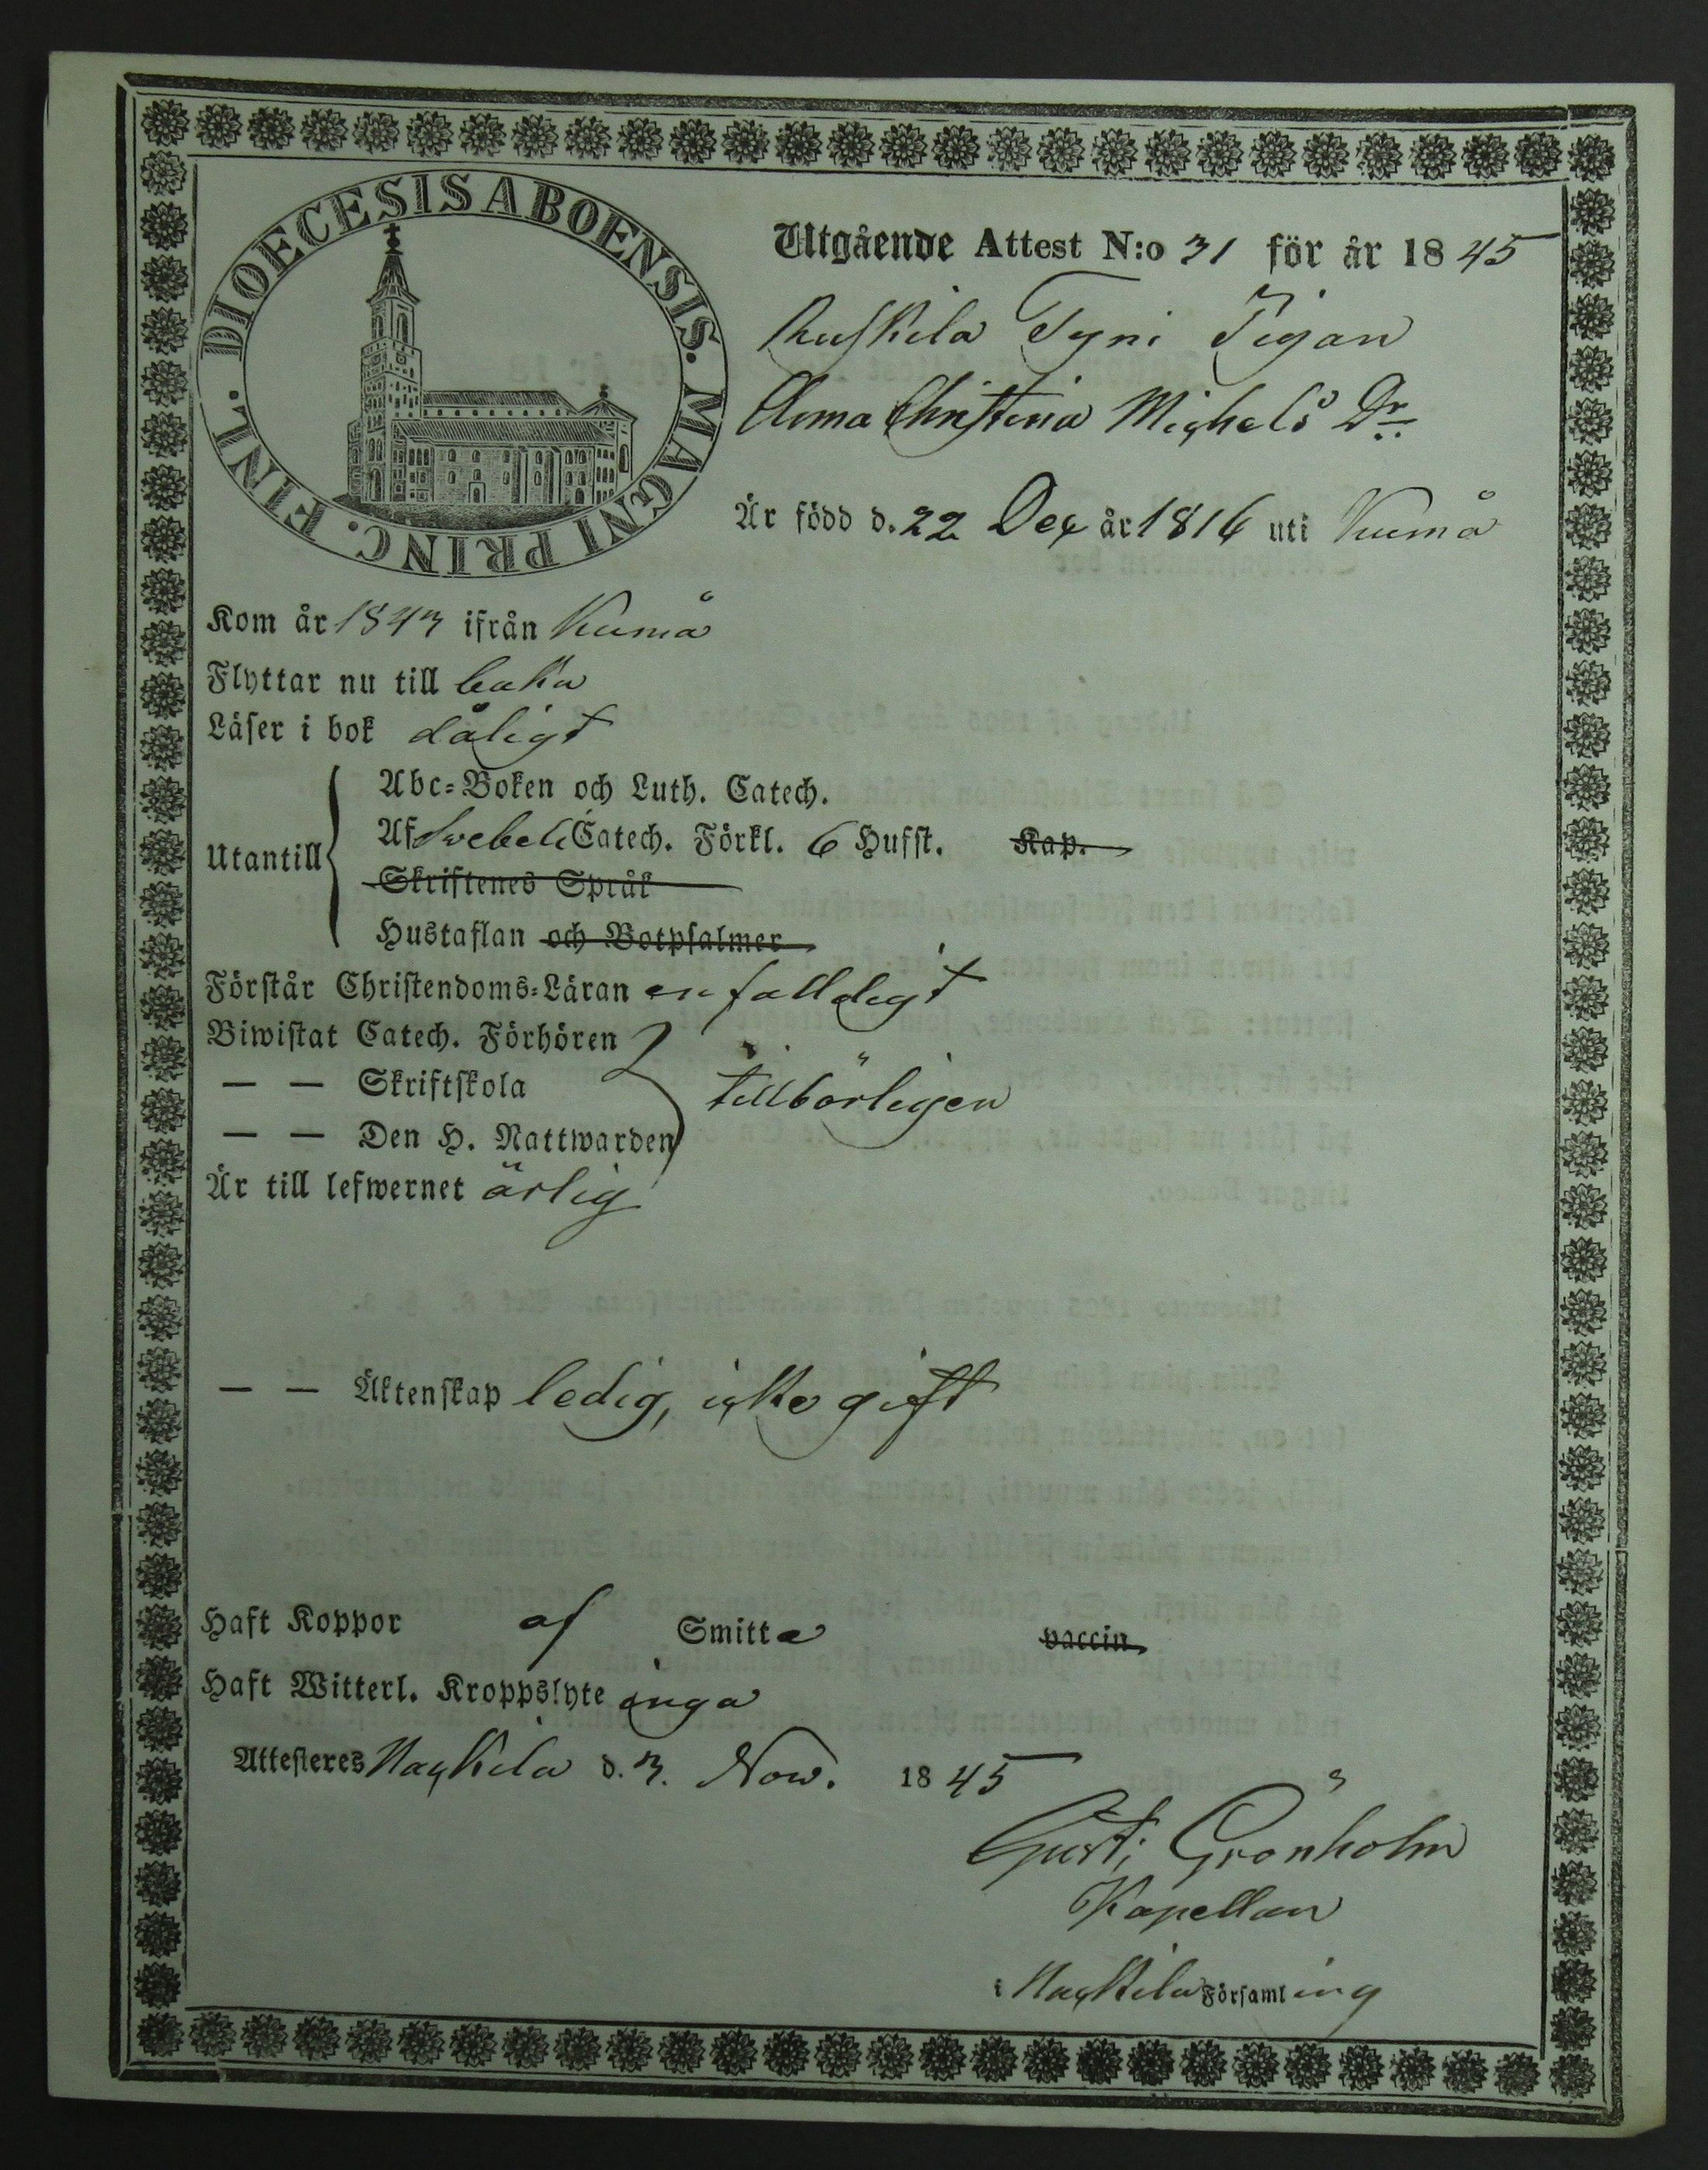 DIOECESIS ABOENSIS. MAGNI PRINC. FINL.
Utgående Attest N:o 31 för år 1845
Ruskila Tyni Pigan
Anna Christina Michels Dr
Är född d. 22 Dec år 1816 uti Kumå
Kom år 1843 ifrån Kumå
Flyttar nu till baka
Läser i bok dåligt
Utantill
Abc-Boken och Luth. Catech.
Af Swebeli Catech. Förkl. 6 Hufst. Kap.
Skriftenes Språk
Hustaflan och Botpsalmer
Förstår Christendoms-Läran enfalldigt
Biwistat Catech. Förhören
— — Skriftskola tillbörligen
— — Den H. Nattwarden
Är till lefwernet ärlig
— — Äktenskap ledig, icke gift
Haft Koppor af Smitta vaccin
Haft Witterl. Kroppslyte inga
Attesteres Nackila d. 3. Now. 1845
Gust; Grönholm
Kapellan
i Nackila Församling